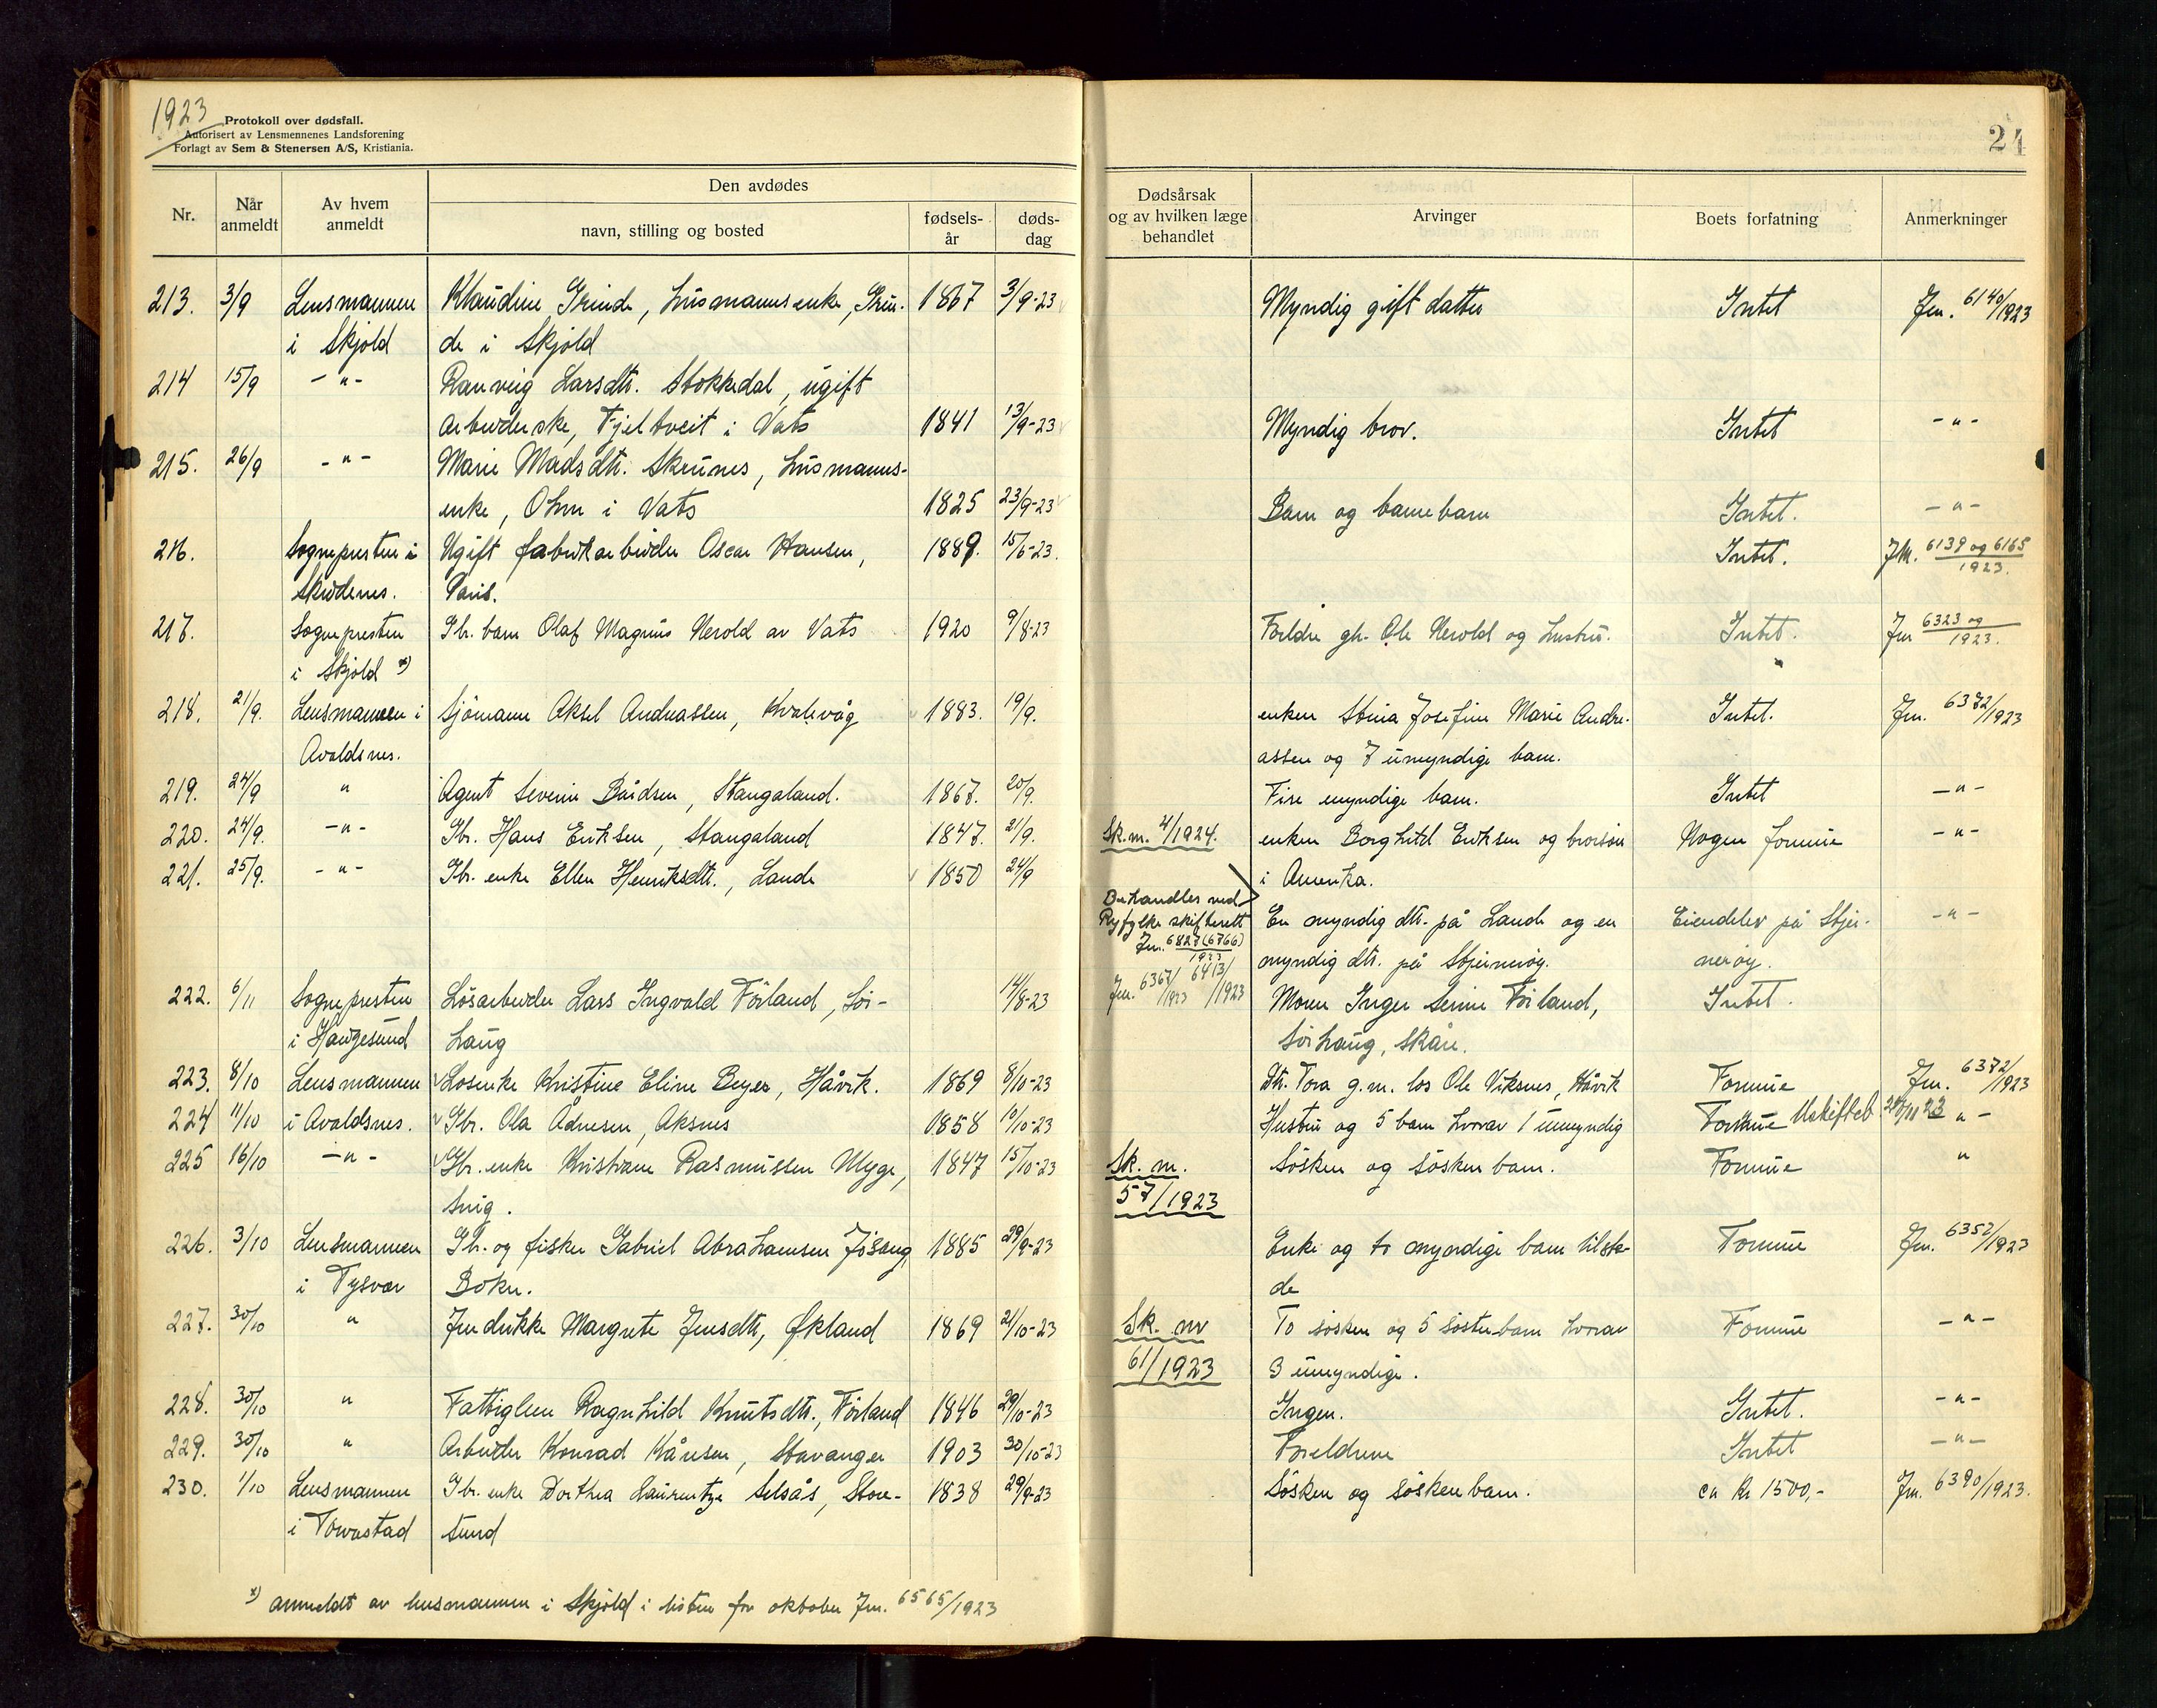 1923
Protokoll over dødsfall.
Autorisert av Lensmennenes Landsforening
Forlagt av Sem & Stenersen A/S, Kristiania.
24
Nr.
Når anmeldt
Av hvem anmeldt
Den avdødes
navn, stilling og bosted
fødsels-år
døds-dag
Dødsårsak og av hvilken læge behandlet
Arvinger
Boets forfatning
Anmerkninger
213. 3/9 Lensmannen Klaudine Grinde, husmannsenke, Grin- 1867 3/9-23 Myndig gift datter Intet Jnr. 6140/1923
i Skjold de i Skjold
214 15/9 -"- Ranveig Larsdtr. Stokkedal, ugift
arbeiderske, Fjeltveit i Vats 1841 13/9-23 Myndig bror. Intet -"-
215. 26/9 -"- Marie Madsdtr. Skeunes, husmanns-
enke, Ohm i Vats 1825 23/9-23 Barn og barnebarn Intet. -"-
216. Sognepresten i Ugift fabrikarbeider Oscar Hansen, 1889. 15/6-23. Intet. JNr. 6139 og 6165/1923.
Skudenes. Paris.
217. Sognepresten Gbr. barn Olaf Magnus Nerold av Vats 1920 9/8-23 Foreldre gbr. Ole Nerold og hustru. Intet. Jnr 6323 og/1923.
i Skjold x)
218. 21/9. Lensmannen i Sjömann Aksel Andreassen, Kvalevåg 1883. 19/9. enken Stina Josefine Marie Andre- Intet. Jnr. 6372/1923
Avaldsnes. assen og 7 umyndige barn.
219. 24/9 " Agent Severin Bårdsen, Stangaland. 1867. 20/9. Fire myndige barn. Intet -"-
220. 24/9. -"- Gbr. Hans Eriksen, Stangaland 1847. 21/9. Sk.nr. 4/1924. enken Borghild Eriksen og brorsön Nogen formue -"-
221. 25/9. -"- Gbr. enke Ellen Henriksdtr., Lande 1850 24/9 i Amerika.
Behandles ved
Ryfylke skifterett En myndig dtr. på Lande og en Eiendeler på Stjer- -"-
Jnr. 6827(6766)/1923 myndig dtr. på Stjerneröy. neröy.
222. 6/11 Sognepresten Lösarbeider Lars Ingvald Förland, Sör- 14/8-23 Jnr. 6367/1923 6413/1923 Moren Inger Serine Förland, Intet.
i Haugesund haug Sörhaug, Skåre.
223. 8/10 Lensmannen Losenke Kristine Eline Beyer, Håvik. 1869 8/10-23 Dtr. Tora g.m. los Ole Viksnes, Håvik Formue Jnr. 6372/1923
224 11/10 i Avaldsnes. Gbr. Ola Ådnesen, Aksnes 1858 10/10-23 Hustru og 5 barn hvorav 1 umyndig Formue Uskiftet 20/11 23 "-
225 16/10 -"- Gbr. enke Kristiane Rasmussen Myge, 1847 15/10-23 Sk. nr. Sösken og söskenbarn. Formue "
Snig. 57/1923
226. 3/10 Lensmannen Gbr. og fisker Gabriel Abrahamsen Jösang, 1885 29/9-23 Enke og to myndige barn tilste- Formue Jnr. 6352/1923
i Tysvær Bokn. de
227. 30/10 " Fredrikke Margrete Jensdtr, Økland 1869 21/10-23 Sk. nr To sösken og 5 sösterbarn hvorav Formue -"-
61/1923 3 umyndige.
228. 30/10 " Fattiglem Ragnhild Knutsdtr., Förland 1846 29/10-23 Ingen. Intet. -"-
229. 30/10 " Arbeider Konrad Kåresen, Stavanger 1903 30/10-23 Foreldrene Intet -"-
230. 1/10 Lensmannen Gbr. enke Dorthea Laurentze Selsås, Store- 1838 29/9-23 Sösken og söskenbarn. ca Kr 1500,- Jnr. 6390/1923.
i Torvastad sund
x) anmeldt av lensmannen i Skjold i listen for oktober Jnr. 6565/1923